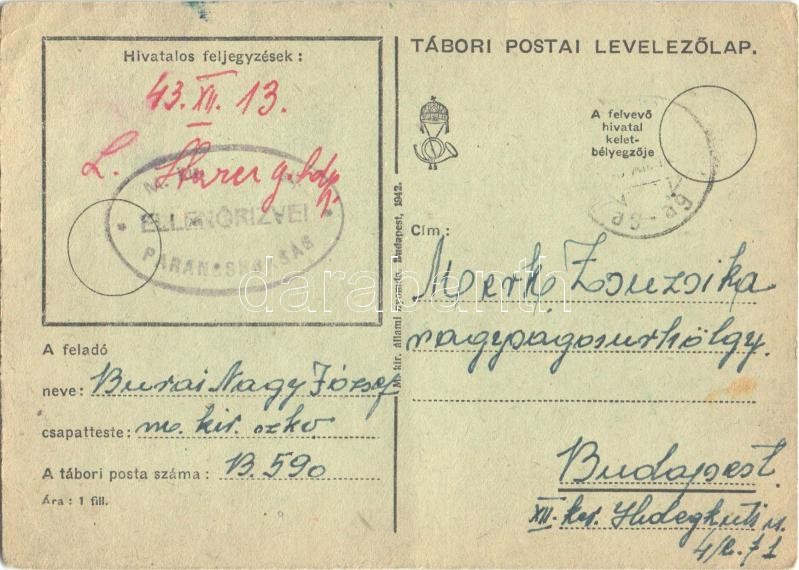 Hivatalos feljegyzések :
43. XII. 13.
L.
M.
ELLENŐRIZVE!
PARANCSNOKSÁG
A feladó
neve: Burai Nagy József
csapatteste: m. kir. szkv
A tábori posta száma : B.590
Ára : 1 fill.
M. kir. állami nyomda. Budapest, 1942.
TÁBORI POSTAI LEVELEZŐLAP.
A felvevő
hivatal
kelet-
bélyegzője
Cím :
Merk Zsuzsika
nagyságosurhölgy.
Budapest.
XII. ker. Hidegkuti u.
darabanth